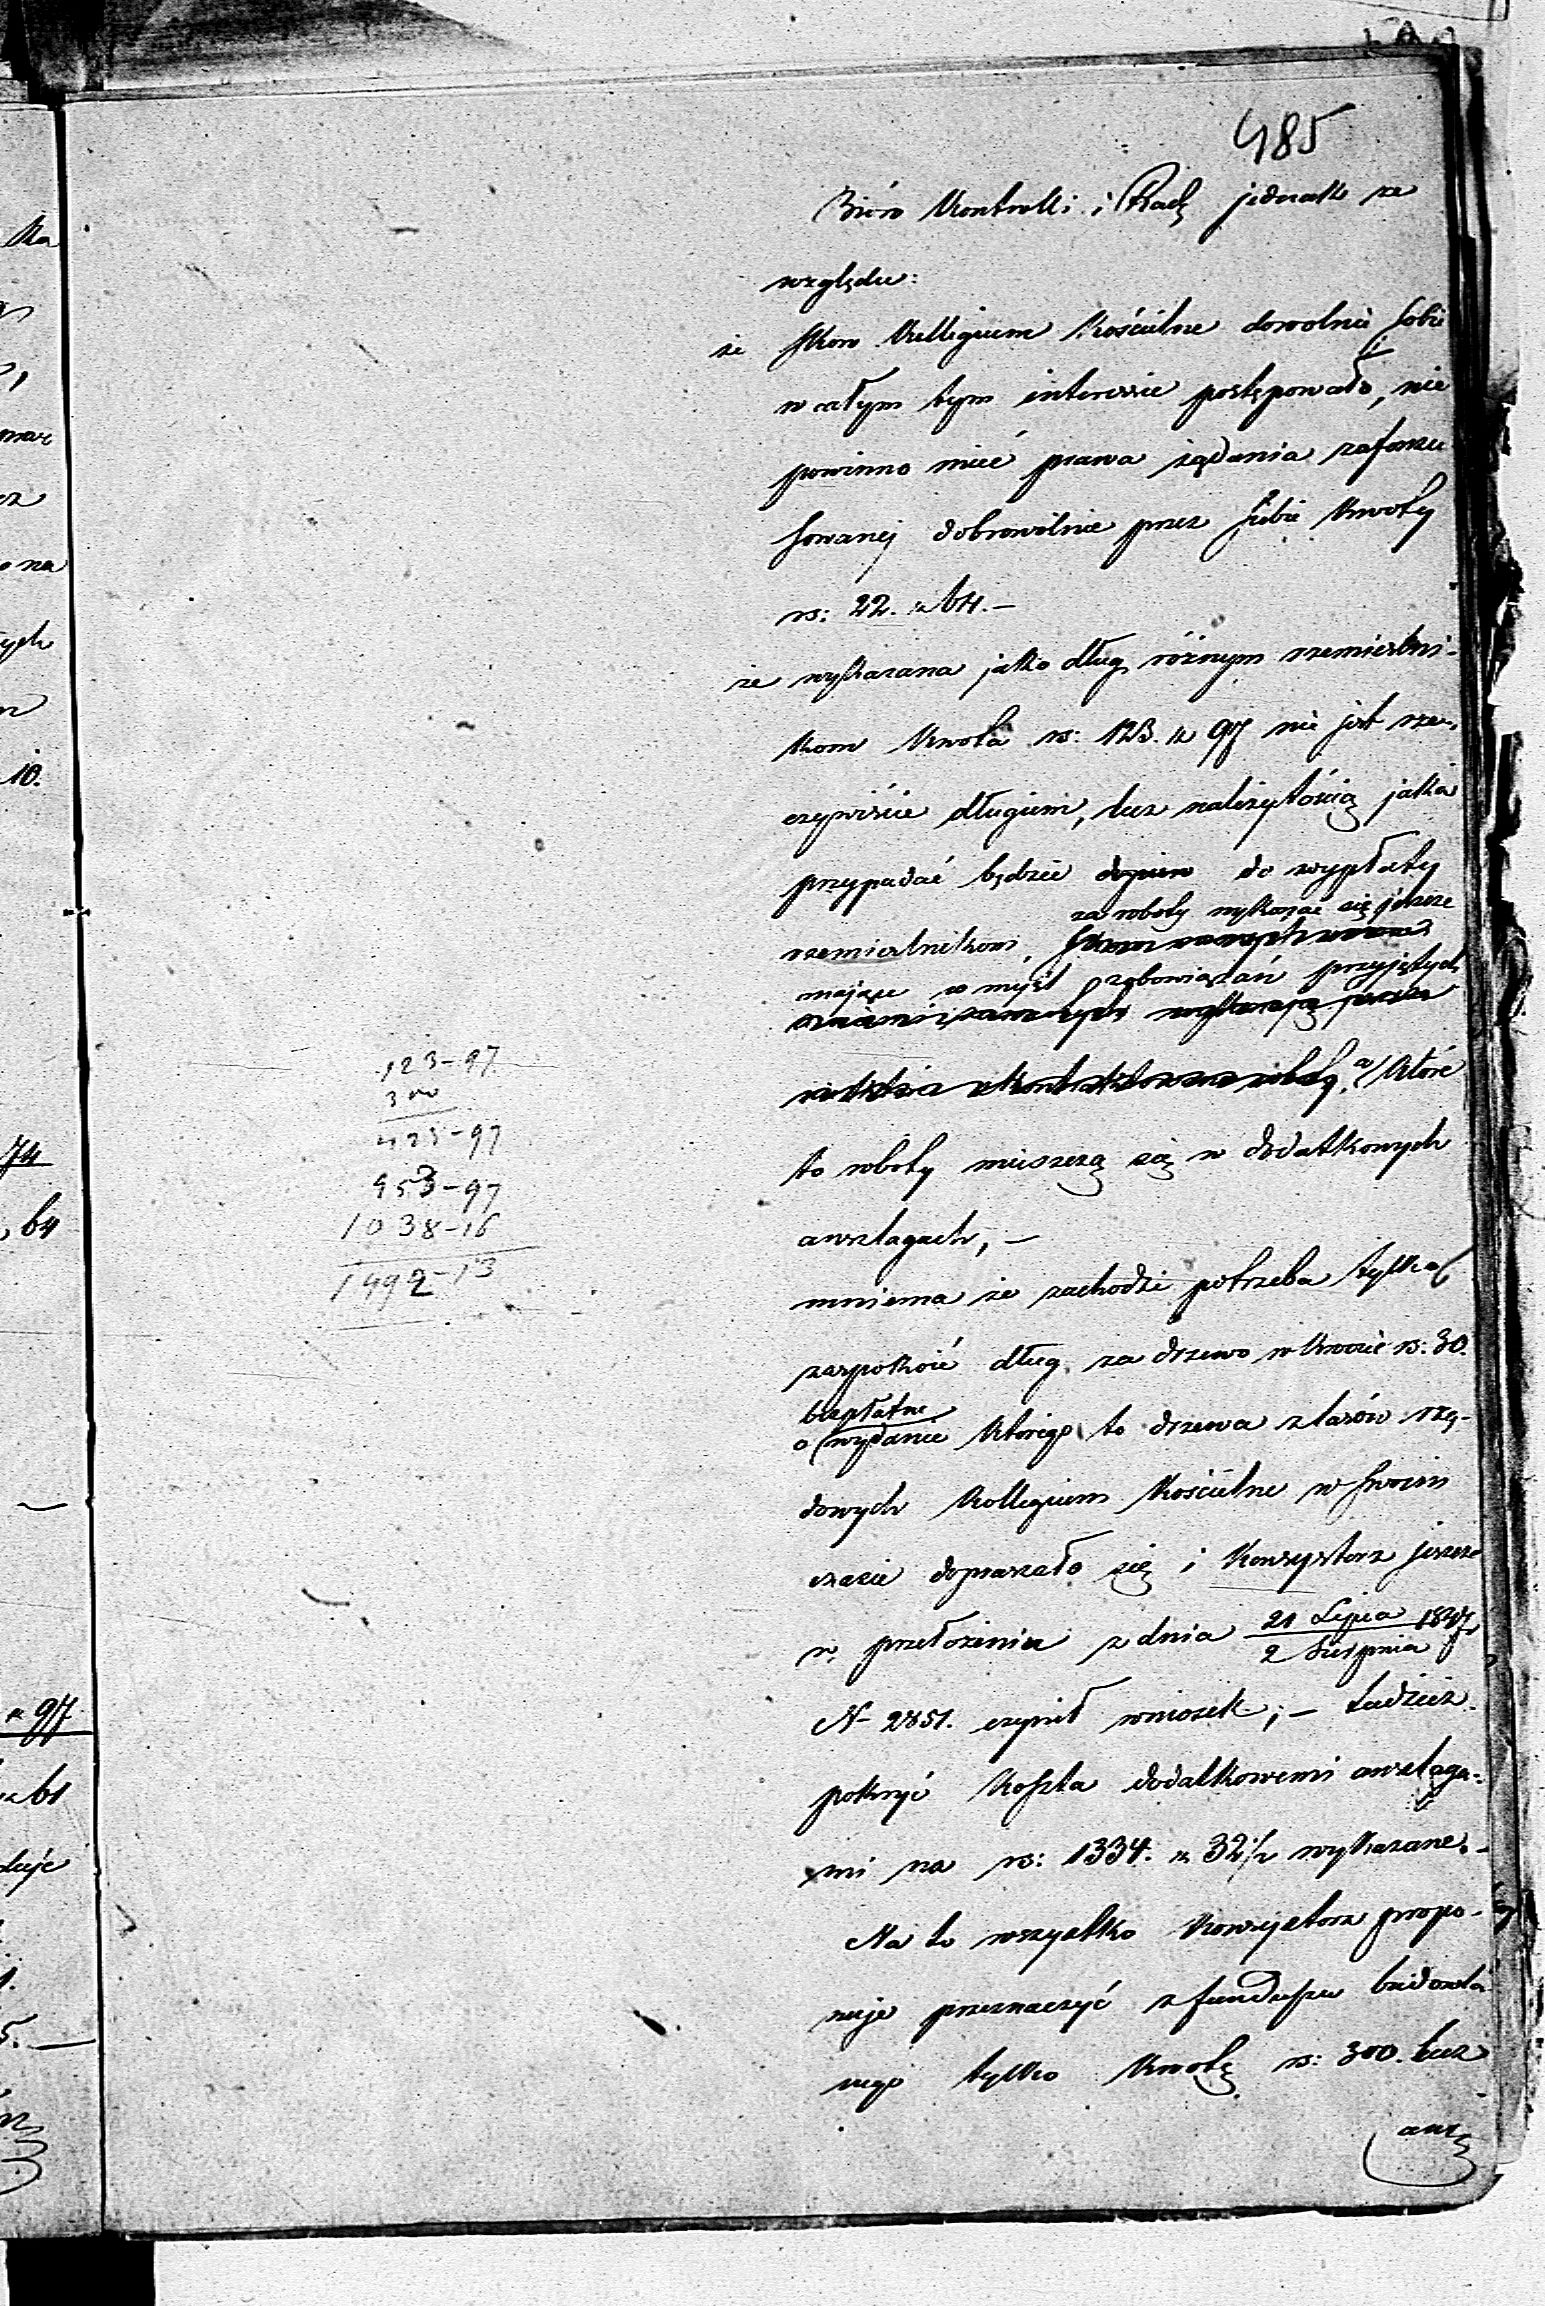 485
Bióro Kontrolli i Rady jednak ze
względu:
że skoro Kollegium Kościelne dowolnie sobie
w całym tym interessie postępowało, nie
powinno mieć prawa żądania zaforszu
sowanej dobrowolnie przez siebie kwoty
rs: 22. k 64. –
że wykazana jako dług różnym rzemieślni-
kom kwota rs: 123. k 97 nie jest rze-
czywiście długiem, lecz należytością jaka
przypadać będzie dopiero do wypłaty
za roboty wykonać się jeszcze
rzemieślnikom,
mające w myśl zobowiązań przyjętych
a/ które
to roboty mieszczą się w dodatkowych
anszlagach, –
mniema że zachodzi potrzeba tylko
zaspokoić dług za drzewo w kwocie rs: 30.
bezpłatne
o wydanie którego to drzewa z lasów rzą-
dowych Kollegium Kościelne w swoim
czasie dopraszało się i Konsystorz jeszcze
w przełożeniu z dnia 21 Lipca / 2 Sierpnia 1847
N 2851. czynił wniosek; – tudzież
pokryć koszta dodatkowemi anszlaga-
mi na rs: 1334. k 32½ wykazane. –
Na to wszystko Konsystorz propo-
nuje przeznaczyć z funduszu budowla
nego tylko kwotę rs: 300. lecz
123-97
300
423-97
953-97
1038-16
1992-13
Ka
na
10.
74
64
k 97
k 61
duje